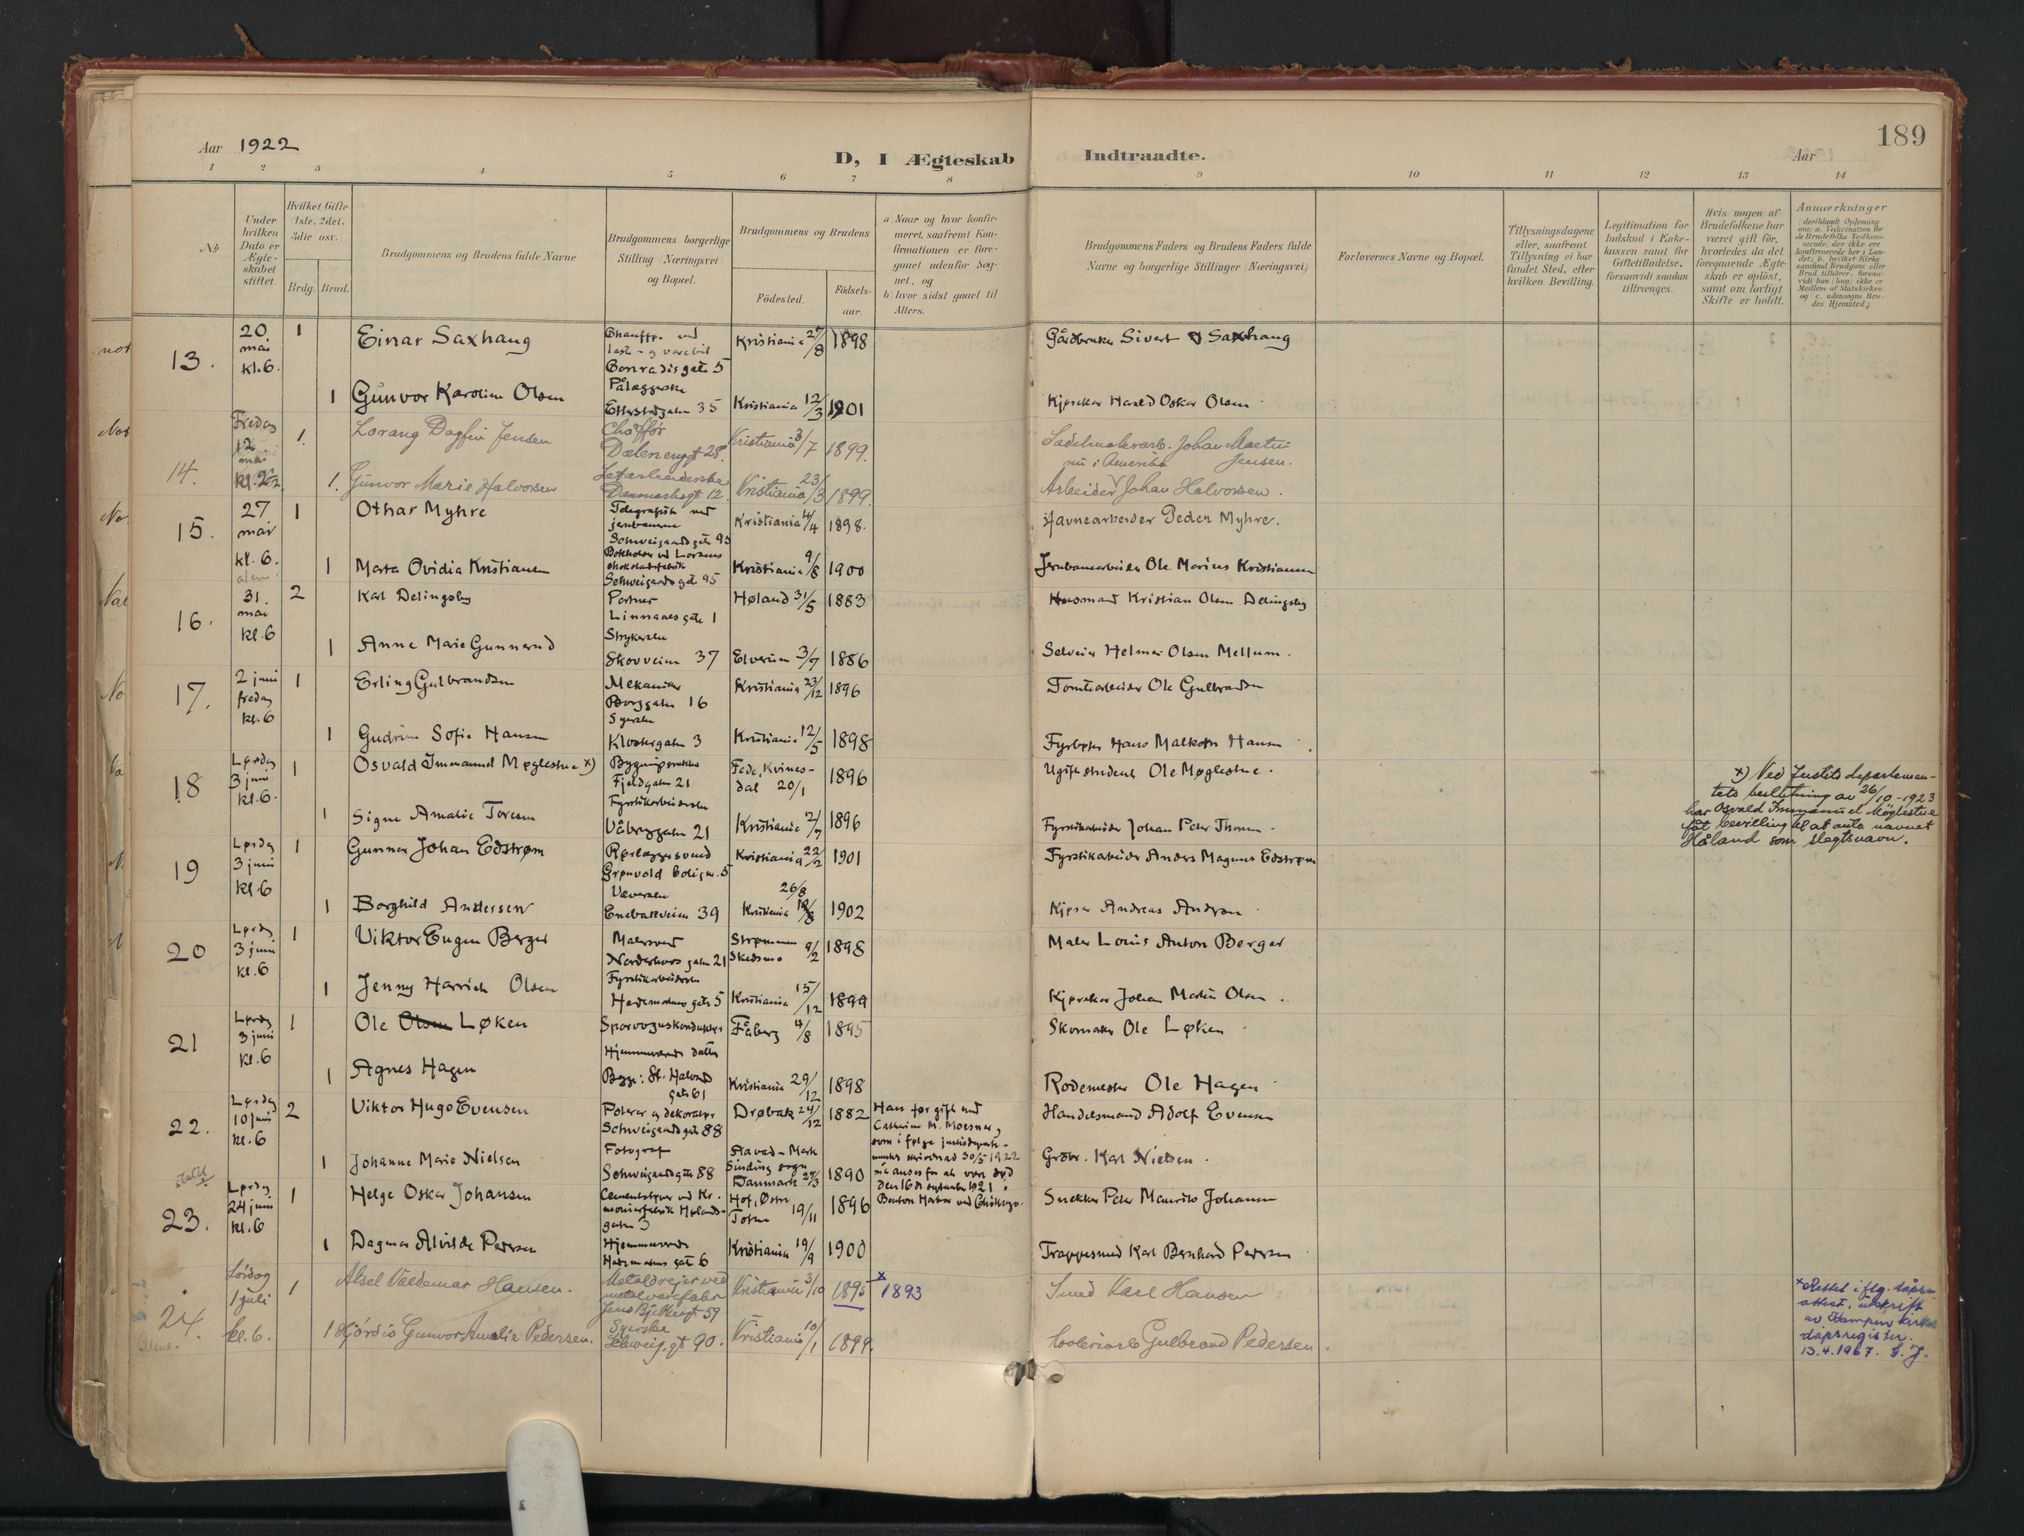 189
Aar 1922
D, I Ægteskab Indtraadte.
Aar
1 2 3 4 5 6 7 8 9 10 11 12 13 14
No
Under hvilken Dato er Ægteskabet stiftet.
Hvilket Gifte 1ste, 2det, 3die osv.
Brdg. Brud.
Brudgommens og Brudens fulde Navne
Brudgommens borgerlige Stilling (Næringsvei) og Bopæl.
Brudgommens og Brudens
Fødested.
Fødselsaar.
a) Naar og hvor konfirmeret, saafremt Konfirmationen er foregaaet udenfor Sognet, og
b) hvor sidst gaaet til Alters.
Brudgommens Faders og Brudens Faders fulde Navne og borgerlige Stillinger (Næringsvei)
Forlovernes Navne og Bopæl.
Tillysningsdagene eller, saafremt Tillysning ei har fundet Sted, efter hvilken Bevilling.
Legitimation for Indskud i Enkekassen samt for Giftetilladelse, forsaavidt saadan tiltrænges.
Hvis nogen af Brudefolkene har været gift før, hvorledes da det foregaaende Ægteskab er opløst, samt om lovligt Skifte er holdt.
Anmærkninger
13. 20 mai kl. 6. 1 Einar Saxhaug Conradis gate 5 Kristiania 27/8 1898 Gårdbruker Sivert Saxhaug
1 Gunvor Karoline Olsen Pålæggerske Etterstadgaten 35 Kristiania 12/3 1901 Kjørekar Harald Oskar Olsen
14. Fredag 12 mai 1. Lorang Dagfin Jensen Chaffør Dælenenggt 28. Kristiania 3/7 1899. Sadelmakerarb. Johan Martin Jensen. nu i Amerika
1. Gunvor Marie Halvorsen Danmarksgt 12. Kristiania 23/3 1899. Arbeider Johan Halvorsen.
15. 27 mai kl. 6. 1 Othar Myhre Telegrafist ved jernbanerne Schweigaardsgate 95 Kristiania 4/4 1898. Havnearbeider Peder Myhre.
1 Marta Ovidia Kristiansen Schweigaardsgt 95 Kristiania 9/8 1900 Jernbanearbeider Ole Marius Kristiansen
16. 31. mai kl. 6 2 Karl Delingsby Portner Linnaaes gate 1 Høland 31/5 1883 Husmand Kristian Olsen Delingsby
1 Anne Marie Gunnerud Strykerske Skovveien 37 Elverum 3/7 1886 Selveier Helmer Olsen Mellum.
17. 2 juni fredag kl. 6 1 Erling Gulbrandsen Mekaniker Borggaten 16 Kristiania 23/12 1896 Tomtearbeider Ole Gulbrandsen
1 Gudrun Sofie Hansen Syerske Klostergaten 3 Kristiania 12/5 1898 Fyrbøter Hans Malkolm Hansen
18 Lørdag 3 juni kl. 6. 1 Osvald Immanuel Møglestue x) Fjeldgaten 21 Fede, Kvinesdal 20/1 1896 Ugift student Ole Møglestue.
1 Signe Amalie Toresen Fyrstikarbeiderske Vålerggaten 21 Kristiania 12/7 1896 Fyrstikarbeider Johan Peter Thoresen.
x) Ved Justitsdepartementets beslutning av 26/10-1923
har Osvald Immanuel Møglestue
fåt bevilling til at anta navnet
Håland som slegtsnavn.
19 Lørdag 3 juni kl. 6 1 Gunnar Johan Edstrøm Rørlæggersvend Grønvold bolig nr. 5 Kristiania 22/2 1901 Fyrstikarbeider Anders Magnus Edstrøm
1 Borghild Andersen Væverske Enebakveien 39 26/8 Kristiania 1902 Kjører Andreas Andersen
20 Lørdag 3 juni kl. 6 1 Viktor Eugen Berger Malersvend Norderhovs gaten 21 Strømmen Skedsmo 9/2 1898 Maler Louis Anton Berger
1 Jenny Harriet Olsen Fyrstikarbeiderske Hedemarkens gate 5 Kristiania 15/12 1899 Kjørekar Johan Martin Olsen.
21 Lørdag 3 juni kl. 6 1 Ole Olsen Løken Sporvognskonduktør Fåberg 4/8 1895 Skomaker Ole Løken
1 Agnes Hagen Hjemmeværende datter Bygge: St. Halvards gate 61 Kristiania 29/12 1898 Rodemester Ole Hagen
22. Lørdag 10 juni kl. 6 2 Viktor Hugo Evensen Polerer og dekoratør Schweigaardsgate 88 Drøbak 24/12 1882 Handelsmand Adolf Evensen
Han før gift med Catherine M. Moesner, som i følge justisdepartementets skrivelse 30/5 1922 må ansees for at være død den 16de september 1921
1 Johanne Marie Nielsen Fotograf Schweigaardsgate 88 Sinding sogn Danmark 27/3 1890 Grdbr. Karl Nielsen.
23. Lørdag 24 juni kl. 6 1 Helge Oskar Johansen Hof, Østre Toten 19/11 1896 Snekker Peter Mauritz Johansen
1 Dagmar Alvilde Pedersen Hjemmeværende Hedemarkens gate 6 Kristiania 19/9 1900 Trappesmed Karl Bernhard Pedersen
24. Lørdag 1 juli kl. 6. 1 Aksel Valdemar Hansen. Metaldreier ved metalvarefabr Jens Bjelkesgt 59 Kristiania 3/10 1895 x 1893 Smed Karl Hansen
1 Hjördis Gunvor Amalie Pedersen. Syerske Schweig.gt 90. Kristiania 10/1 1899. Gulbrand Pedersen.
x Rettet i flg. dåpsattest, utskrift
av Kampen kirkes
dåpsregister.
13.4.1967. S. J.